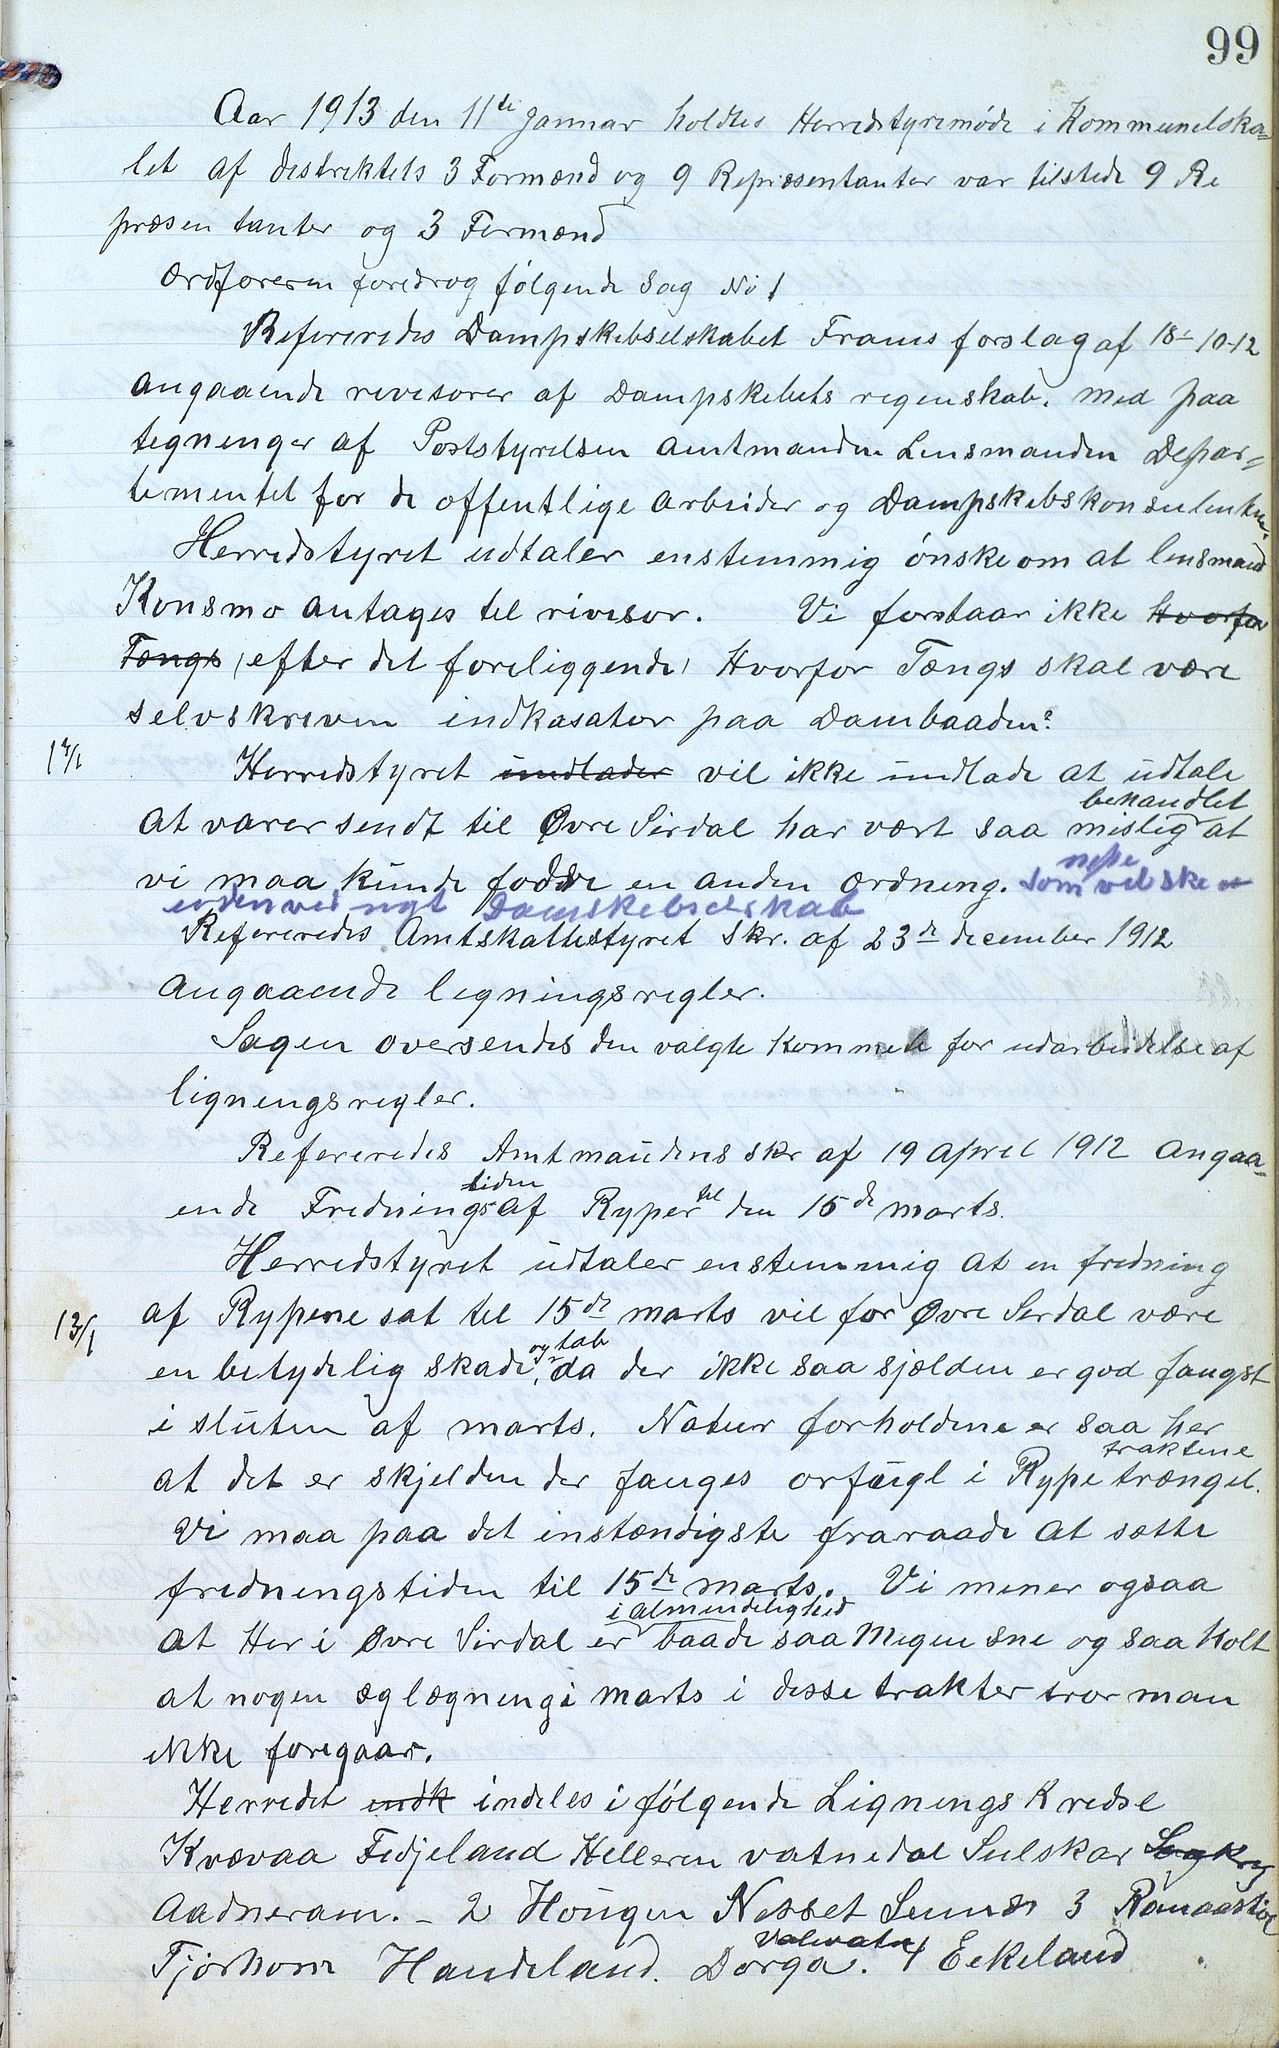 99
Aar 1913 den 11te Januar holdtes Herredstyremøde i Kommunelska=
let af destrektets 3 Formænd og 9 Repræsentanter var tilstede 9 Re
præsentanter og 3 Formænd
Ordføreren foredrog følgende Sag No 1
Refereredes Dampskebselskabet Frams forslag af 18-10-12
angaaende revesorer af Dampskebets regenskab. med paa
tegnenger af Poststyrelsen Amtmanden Lensmanden Depar=
tementet for de offentlige Arbeider og Dampskebskonsulenten.
Herredstyret udtaler enstemmig ónske om at lensmand
Konsmo antages tel revesor. Vi forstaar ikke Hvorfor
Tængs (efter det foreliggende) Hvorfor Tængs skal være
selvskreven indkasator paa Dambaaden?
Herredstyret undlader vil ikke undlade at udtale
behandlet
at varer sendt til Øvre Sirdal har vært saa mislig at
vi maa kunde fodre en anden Ordning. Som vel ske
Damskebselskab
Refereredes Amtskattestyret Skr. af 23de december 1912
Angaaende legningsregler.
Sagen oversendes den valgte Kommete for udarbeidelse af
ligningsregler.
Refereredes Amtmandens skr af 19 April 1912 Angaa=
tiden til
ende Frednings af Ryper den 15de marts.
Herredstyret udtaler enstemmig at en fredning
13/1
af Rypene sat tel 15de marts vil for Øvre Serdal være
og tab
en betydelig skade, da der ikke saa sjælden er god fangst
i sluten af marts. Natur forholdene er saa her
traktene
at det er skjelden der fanges orfugl i Rype trængel.
Vi maa paa det instændigste fraraade at sætte
fredningstiden til 15de marts. Vi mener ogsaa
i almindelighed
at Her i Øvre Sirdal er baade saa Megen sne og saa Kolt
at nogen æglægneng i marts i desse trakter tror man
ikke foregaar.
Herredet indk indeles i følgende Lignings Kredse
Kvævaa Fidjeland Helleren vatnedal Sulskar
Aadneram. - 2 Hougen Nesset Sunes 3
Valevatn
Tjørhom Handeland. Dorga. 4 Eekeland